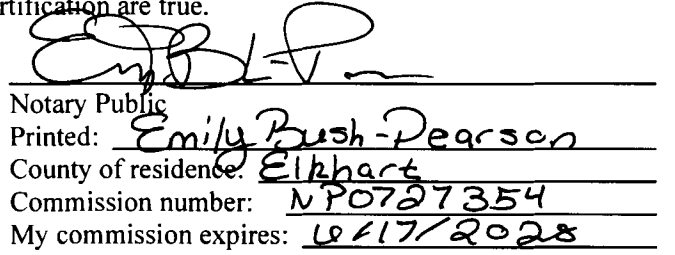 rtification are true.
Notary Public
Printed: Emily Bush-Pearson
County of residence: Elkhart
Commission number: NP0727354
My commission expires: 6/17/2028